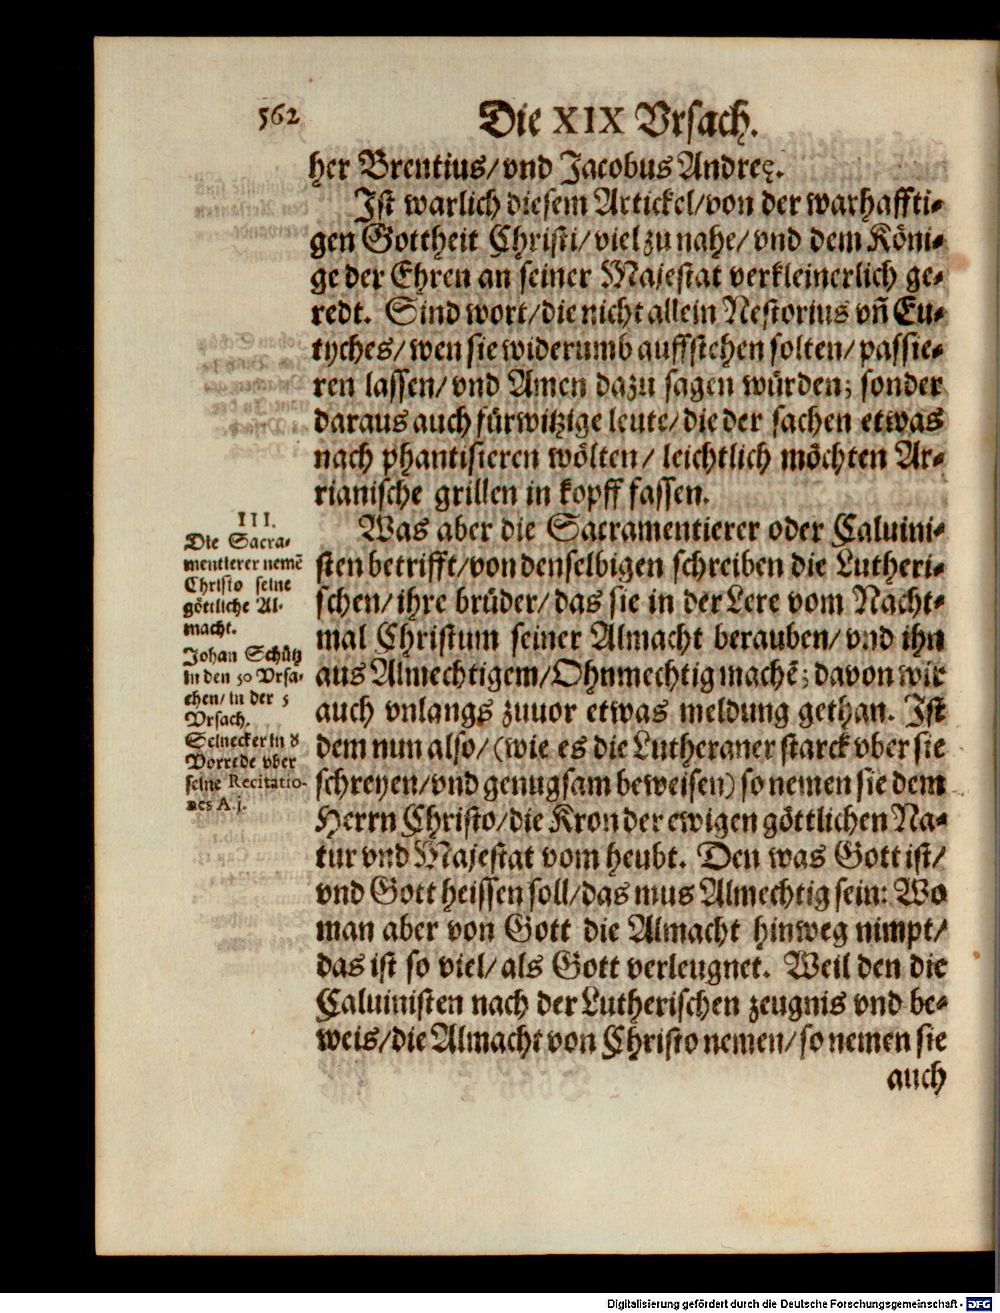 562
Die XIX Vrsach.
her Brentius/vnd Jacobus Andreę.
Ist warlich diesem Artickel/von der warhaffti⸗
gen Gottheit Christi/viel zu nahe/vnd dem Köni⸗
ge der Ehren an seiner Majestat verkleinerlich ge⸗
redt. Sind wort/die nicht allein Nestorius vñ Eu⸗
tyches/wen sie widerumb auffstehen solten/passie⸗
ren lassen/vnd Amen dazu sagen würden; sonder
daraus auch fürwitzige leute/die der sachen etwas
nach phantisieren wölten/leichtlich möchten Ar⸗
rianische grillen in kopff fassen.
III.
Die Sacra⸗
mentierer nemẽ
Christo seine
göttliche Al⸗
macht.
Johan Schütz
in den 50 Vrsa⸗
chen/in der 5
Vrsach.
Selnecker in d
Vorrede vber
seine Recitatio-
nes A.j.
Was aber die Sacramentierer oder Caluini⸗
sten betrifft/von denselbigen schreiben die Lutheri⸗
schen/ihre brüder/das sie in der Lere vom Nacht⸗
mal Christum seiner Almacht berauben/vnd ihn
aus Almechtigem/Ohnmechtig machẽ; davon wir
auch vnlangs zuuor etwas meldung gethan. Ist
dem nun also/(wie es die Lutheraner starck vber sie
schreyen/vnd genugsam beweisen) so nemen sie dem
Herrn Christo/die Kron der ewigen göttlichen Na⸗
tur vnd Majestat vom heubt. Den was Gott ist/
vnd Gott heissen soll/das mus Almechtig sein: Wo
man aber von Gott die Almacht hinweg nimpt/
das ist so viel/als Gott verleugnet. Weil den die
Caluinisten nach der Lutherischen zeugnis vnd be⸗
weis/die Almacht von Christo nemen/so nemen sie
auch
Digitalisierung gefördert durch die Deutsche Forschungsgemeinschaft - DFG